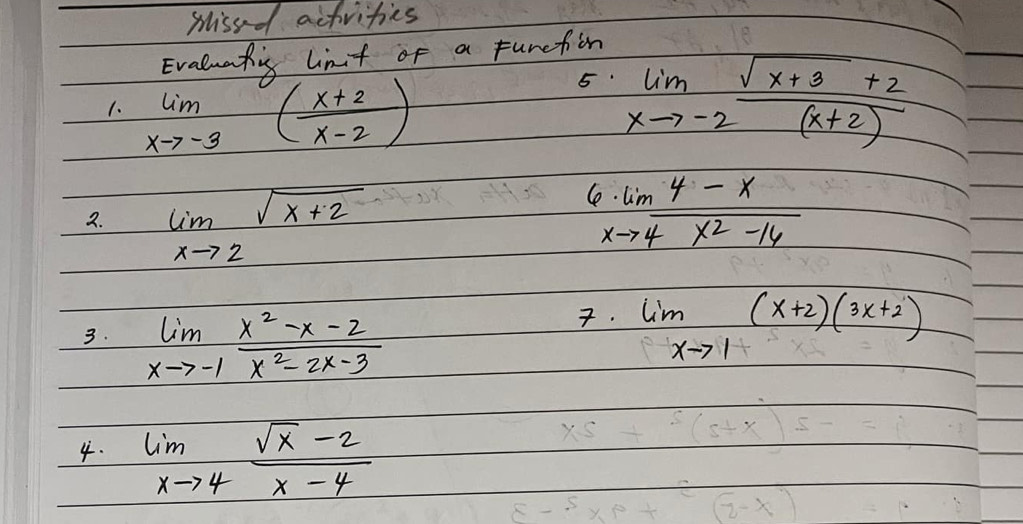 Missed activities
Evaluating limit of a Function
1. lim x→-3 (x+2 / x-2)
2. lim x→2 √x+2
3. lim x→-1 x²-x-2 / x²-2x-3
4. lim x→4 √x -2 / x-4
5. lim x→-2 √x+3 +2 / (x+2)
6. lim x→4 4-x / x²-16
7. lim x→1 (x+2)(3x+2)